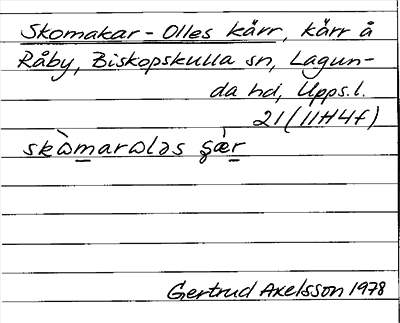 Skomakar-Olles kärr, kärr å
Råby, Biskopskulla sn, Lagun-
da hd, Upps.l.
21 (11H4f)
skɷ̀maralɷləs şæ̀r
Gertrud Axelsson 1978